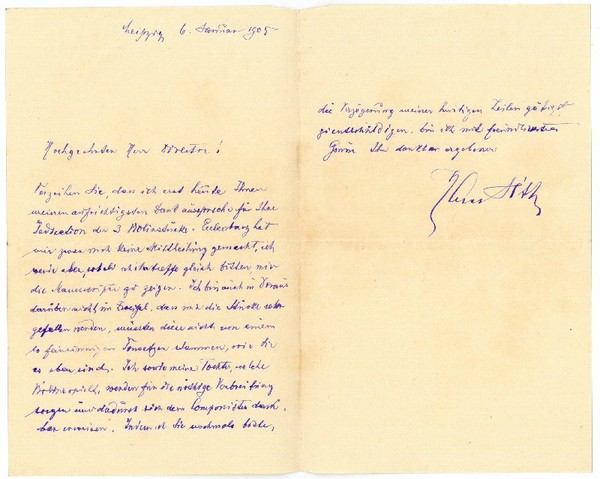 Leipzig 6. Januar 1905
Hochgeehrter Herr Director!
Verzeihen Sie, dass ich erst heute Ihnen
meinen aufrichtigsten Dank ausspreche für Ihre
der 3 Violinstücke. Eulenburg hat
mir zwar noch keine Mittheilung gemacht, ich
werde aber, sobald ich ihn treffe gleich bitten mir
die Manuscripte zu zeigen. Ich bin auch im Voraus
darüber nicht im Zweifel, dass mir die Stücke sehr
gefallen werden, müssten diese nicht von einem
so feinsinnigen Tonsetzer stammen, wie Sie
es eben sind. Ich sowie meine Tochter, welche
Violine spielt, werden für die nöthige Verbreitung
sorgen und dadurch sich dem Componisten dank-
bar erweisen. Indem ich Sie nochmals bitte,
die Verzögerung meiner heutigen Zeilen gütigst
zu entschuldigen, bin ich mit freundlichsten
Ihr dankbar ergebener